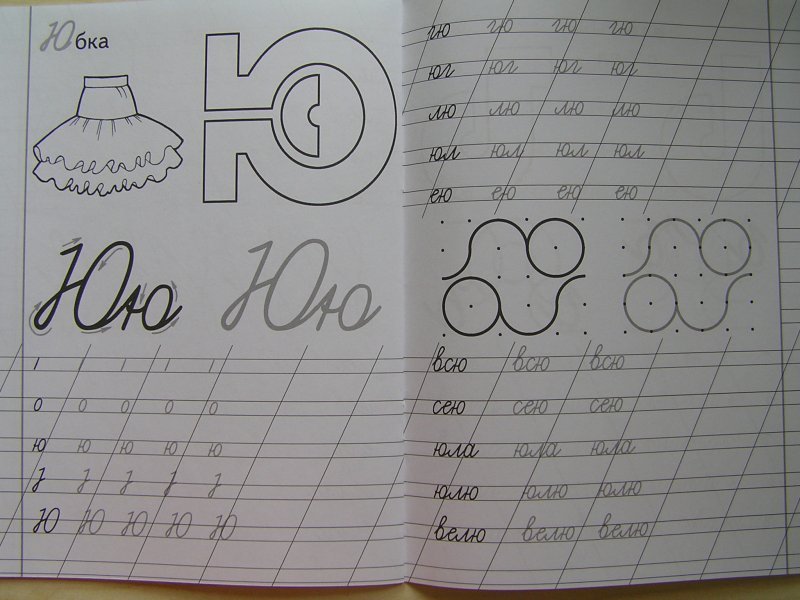 Юбка
Ю
Юю Юю
ı ı ı ı ı
о о о о о
ю ю ю ю ю
J J J J J
Ю Ю Ю Ю Ю
гю гю гю гю
юг юг юг юг
лю лю лю лю
юл юл юл юл
ею ею ею ею
всю всю всю
сею сею сею
юла юла юла
юлю юлю юлю
велю велю велю